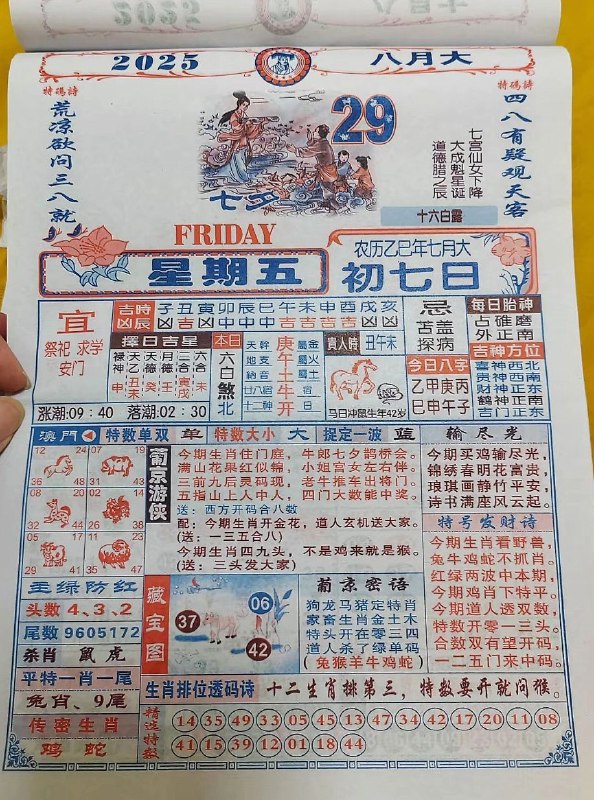 2025
八月大
特碼詩
荒凉欲问三八就
特碼詩
四八有疑观天客
29
七夕
七宫仙女下降
大成魁星诞
道德腊之辰
十六白露
FRIDAY
星期五
农历乙巳年七月大
初七日
宜
祭祀 求学
安门
吉時 子丑寅卯辰巳午未申酉戌亥
凶辰 凶吉凶中中中吉吉吉吉凶凶
擇日吉星
禄神 申
天德 癸
月德 壬
二合
六合
本日
六白
煞
北
天幹
地支
納音
廿八宿
十二神
庚午土牛开
屬金
屬火
貴人時 丑午未
马日冲鼠生年42岁
忌
苫盖
探病
每日胎神
占碓磨
外正南
今日八字
乙甲庚丙
巳申午子
吉神方位
喜神西北
贵神西南
财神正东
鹤神正南
门吉正东
涨潮:09：40 落潮:02：30
澳門 特数单双 单 特数大小 大 捉定一波 蓝
输尽光
12 24
36 48
07 19
31 43
08 20
32 44
02 14
26 38
05 17
29 41
10 22
34 46
葡京游侠
今期生肖住门庭，牛郎七夕鹊桥会。
满山花果红似锦，小姐宫女左右伴。
三前九后灵码现，老牛推车出将门。
五指山上人中人，四门大数能中奖。
送：西方开码合八数
配：今期生肖开金花，道人玄机送大家。
(送：一三五合八)
今期生肖四九头，不是鸡来就是猴。
(送：三头发大家)
今期买鸡输尽光，
锦绣春明花富贵，
琅琪画静竹平安，
诗书满座风云起。
特号发财诗
今期生肖看野兽，
兔牛鸡蛇不抓肖。
红绿两波中本期，
今期鸡肖下特平。
今期道人透双数，
特数开零一三头。
合数双有望开码，
一二五门来中码。
主绿防红
头数 4、3、2
尾数 9605172
杀肖 鼠 虎
平特一肖一尾
兔肖、9尾
传密生肖
鸡 蛇
藏宝图
37
06
42
葡京密语
狗龙马猪定特肖
家畜生肖金土木
特头开在零三四
道人杀了绿单码
(兔猴羊牛鸡蛇)
生肖排位透码诗
十二生肖排第三，特数要开就问猴。
精选特数
14 35 49 33 05 45 13 47 34 42 17 20 11 08
41 15 39 12 01 18 44